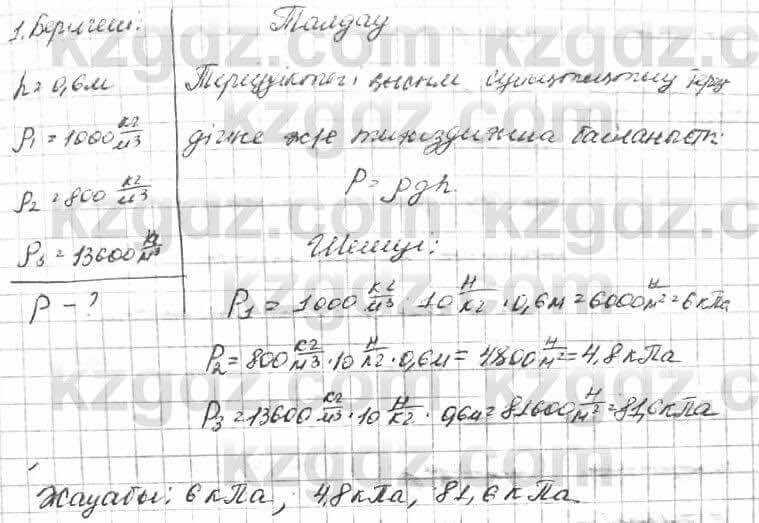 1. Берілгені:
h = 0,6м
ρ₁ = 1000 кг/м³
ρ₂ = 800 кг/м³
ρ₃ = 13600 кг/м³
P - ?
Талдау
қысым
және тығыздығына байланысты:
P = ρgh.
Шешуі:
P₁ = 1000 кг/м³ · 10 Н/кг · 0,6м = 6000 Н/м² = 6 кПа
P₂ = 800 кг/м³ · 10 Н/кг · 0,6м = 4800 Н/м² = 4,8 кПа
P₃ = 13600 кг/м³ · 10 Н/кг · 0,6м = 81600 Н/м² = 81,6 кПа
Жауабы: 6 кПа, 4,8 кПа, 81,6 кПа.
kzgdz.com